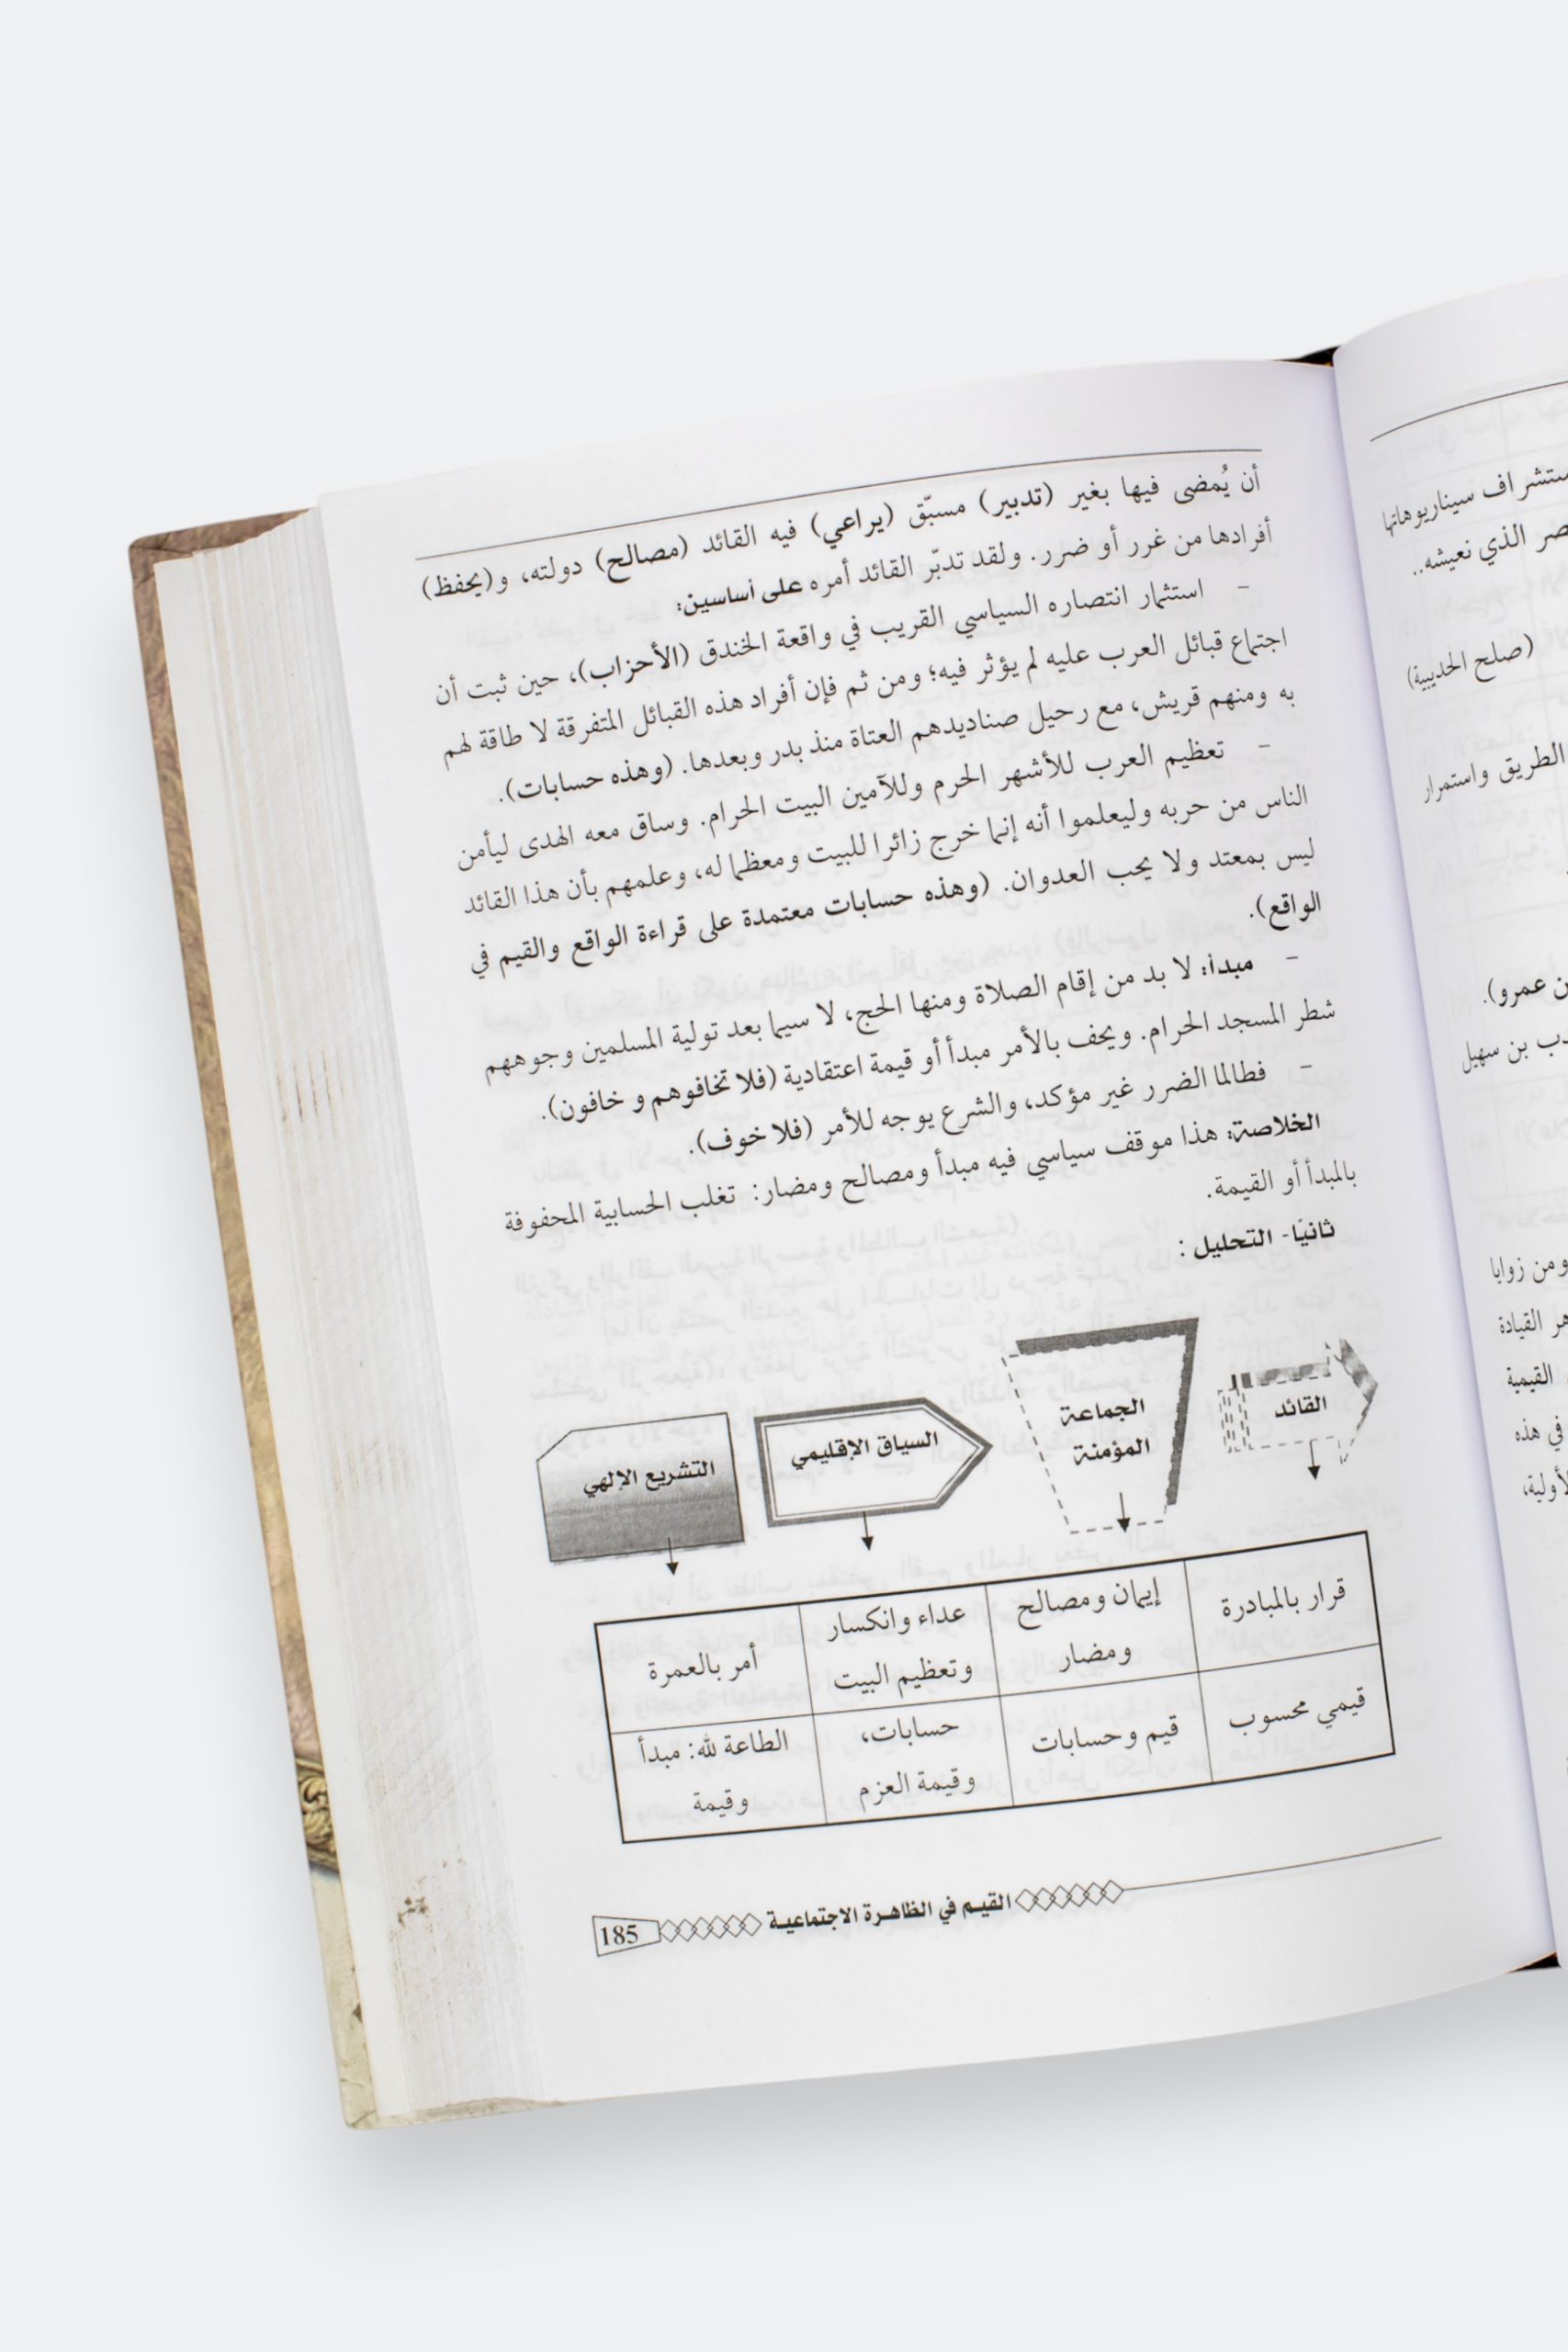 أن يُمضى فيها بغير (تدبير) مسبّق (يراعي) فيه القائد (مصالح) دولته، و(يحفظ)
أفرادها من غرر أو ضرر. ولقد تدبّر القائد أمره على أساسين:
- استثمار انتصاره السياسي القريب في واقعة الخندق (الأحزاب)، حين ثبت أن
اجتماع قبائل العرب عليه لم يؤثر فيه؛ ومن ثم فإن أفراد هذه القبائل المتفرقة لا طاقة لهم
به ومنهم قريش، مع رحيل صناديدهم العتاة منذ بدر وبعدها. (وهذه حسابات).
- تعظيم العرب للأشهر الحرم وللآمين البيت الحرام. وساق معه الهدى ليأمن
الناس من حربه وليعلموا أنه إنما خرج زائرا للبيت ومعظما له، وعلمهم بأن هذا القائد
ليس بمعتد ولا يحب العدوان. (وهذه حسابات معتمدة على قراءة الواقع والقيم في
الواقع).
- مبدأ: لا بد من إقام الصلاة ومنها الحج، لا سيما بعد تولية المسلمين وجوههم
شطر المسجد الحرام. ويحف بالأمر مبدأ أو قيمة اعتقادية (فلا تخافوهم و خافون).
- فطالما الضرر غير مؤكد، والشرع يوجه للأمر (فلا خوف).
الخلاصة: هذا موقف سياسي فيه مبدأ ومصالح ومضار: تغلب الحسابية المحفوفة
بالمبدأ أو القيمة.
ثانيًا- التحليل :
القائد
الجماعة
المؤمنة
السياق الإقليمي
التشريع الإلهي
قرار بالمبادرة
إيمان ومصالح
ومضار
عداء وانكسار
وتعظيم البيت
أمر بالعمرة
قيمي محسوب
قيم وحسابات
حسابات،
وقيمة العزم
الطاعة لله: مبدأ
وقيمة
القيم في الظاهرة الاجتماعية
185
سيناريوهاتها
الذي نعيشه..
(صلح الحديبية)
الطريق واستمرار
عمرو).
بن سهيل
ومن زوايا
القيادة
القيمية
في هذه